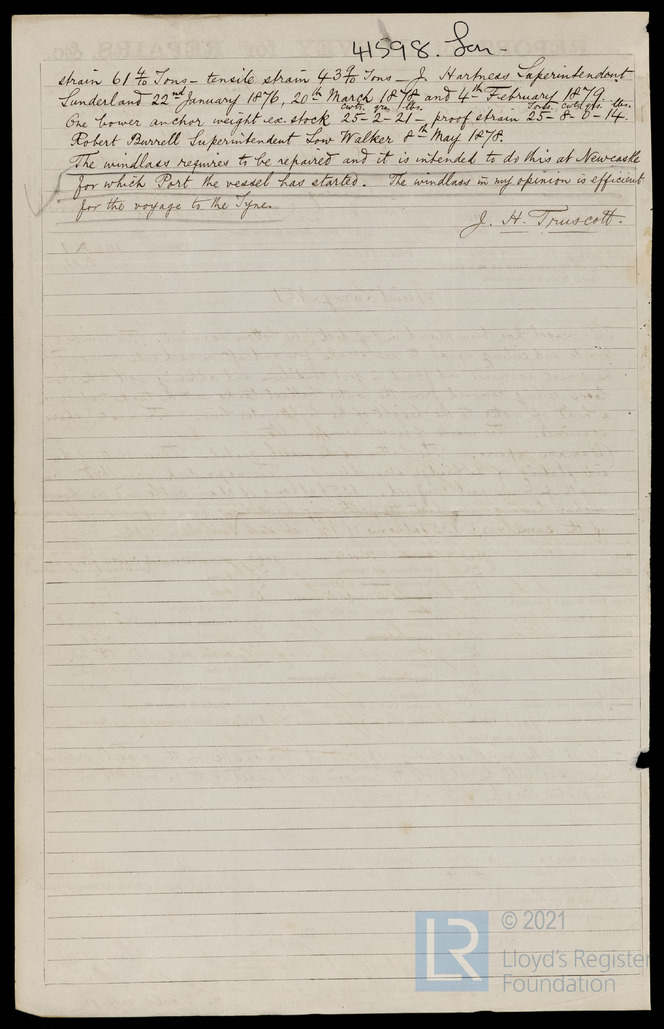 41598. Lon -
strain 61 4/10 Tons - tensile strain 43 9/10 Tons - J. Hartness Superintendent
Sunderland 22nd January 1876, 20th March 1878 and 4th February 1879.
cwts. qrs. lbs. Tons. cwts. qrs. lbs.
One bower anchor weight ex. stock 25-2-21 - proof strain 25-8-0-14.
Robert Burrell Superintendent Low Walker 8th May 1878.
The windlass requires to be repaired and it is intended to do this at Newcastle
for which Port the vessel has started. The windlass in my opinion is efficient
for the voyage to the Tyne.
J. H. Truscott.
© 2021
LR
Lloyd's Register
Foundation